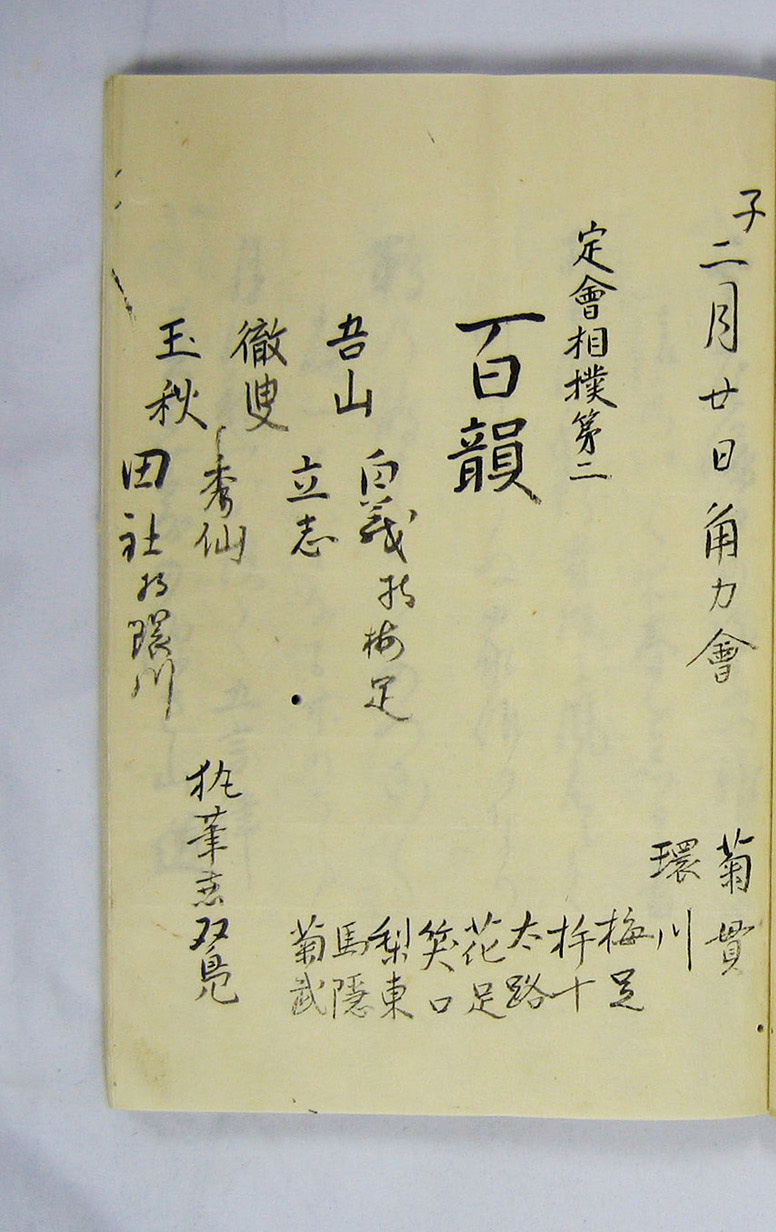 子二月廿日角力會
菊貫
環川
定會相撲第二
百韻
梅足
杵十
太路
花足
笑口
梨東
馬隠
菊武
吾山
白義 梅足
立志
徹叟
秀仙
玉秋
田社 環川
執筆 双鳧